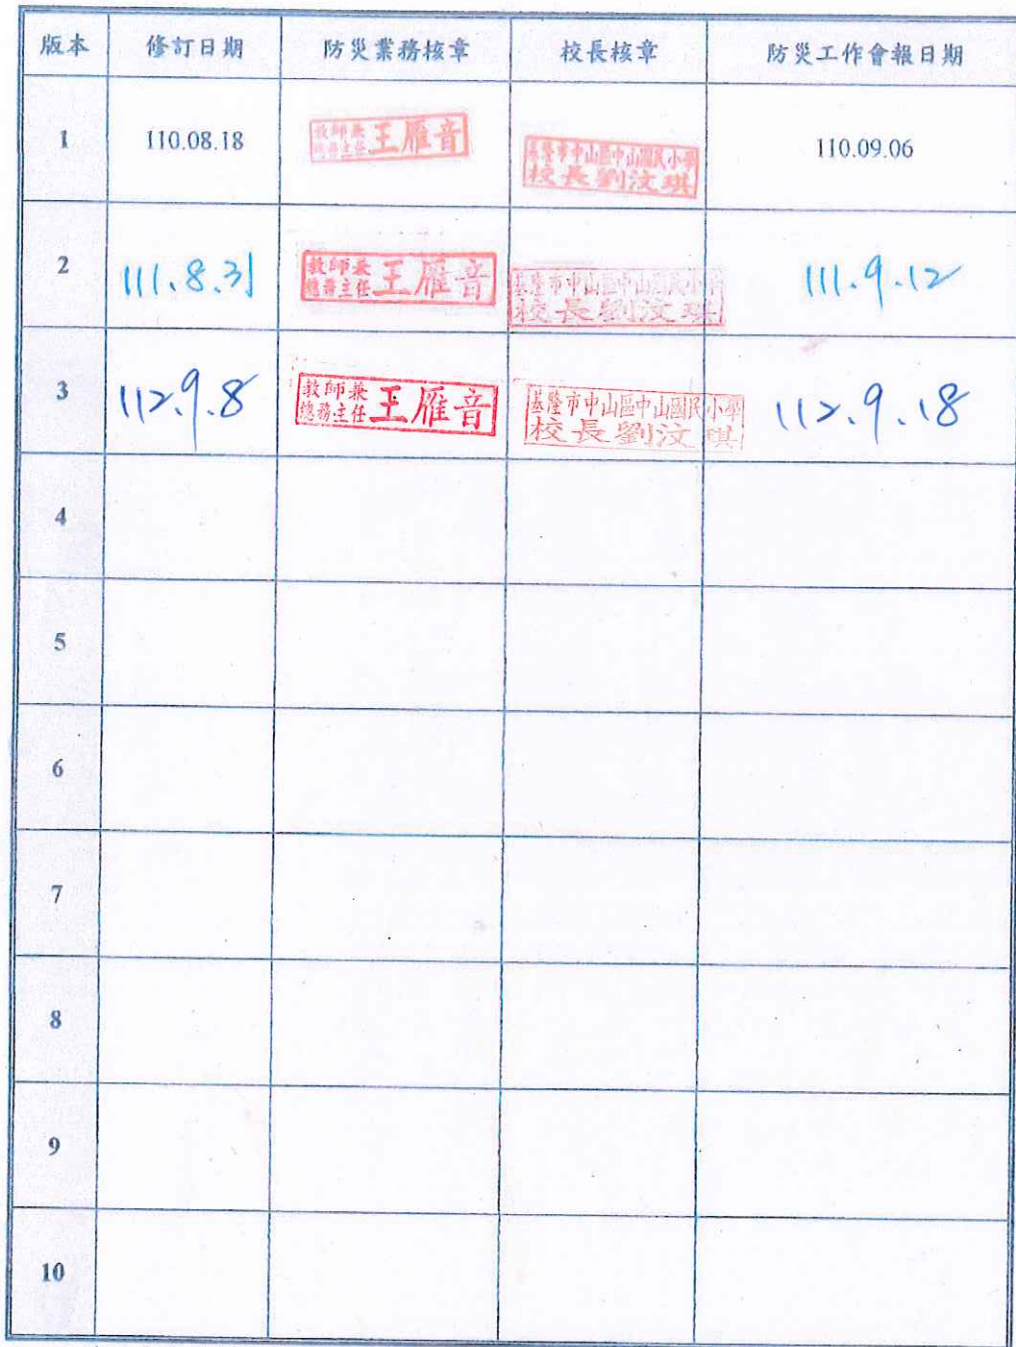 版本 修訂日期 防災業務核章 校長核章 防災工作會報日期
1 110.08.18 教師兼總務主任 王雁音 基隆市中山區中山國民小學 校長劉汶琪 110.09.06
2 111.8.31 教師兼總務主任 王雁音 基隆市中山區中山國民小學 校長劉汶琪 111.9.12
3 112.9.8 教師兼總務主任 王雁音 基隆市中山區中山國民小學 校長劉汶琪 112.9.18
4
5
6
7
8
9
10